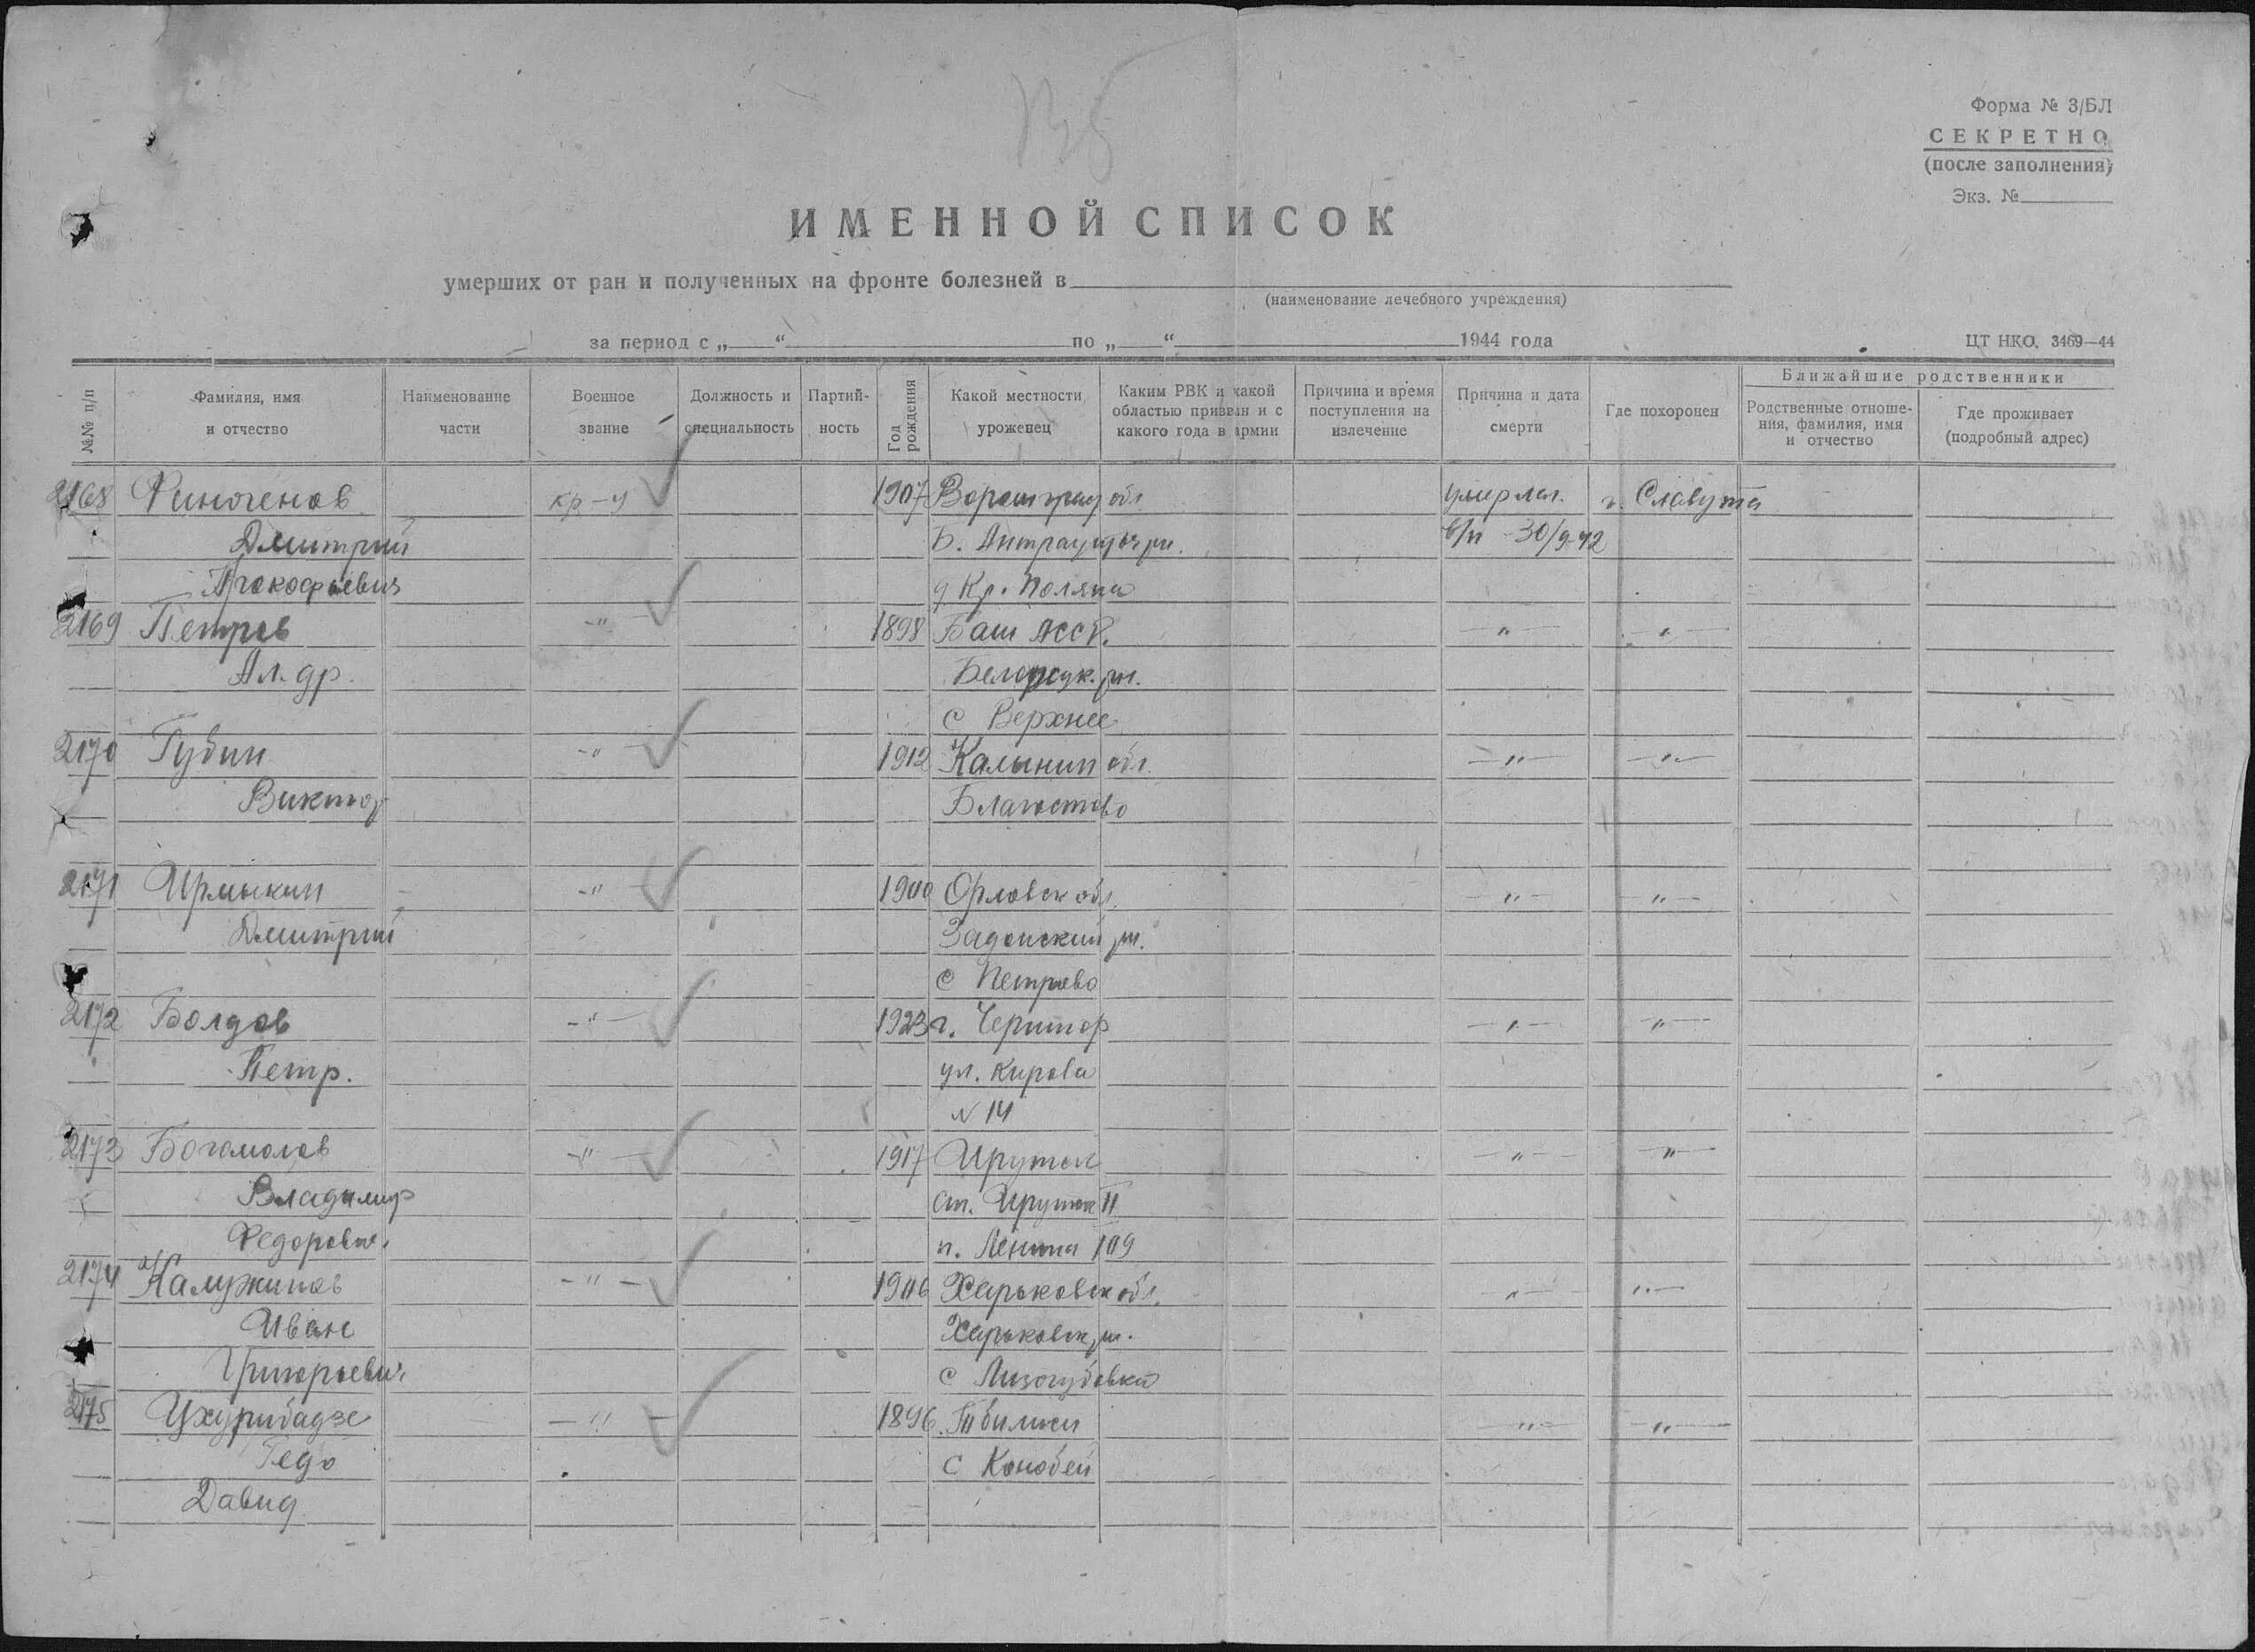 135
Форма № 3/БЛ
СЕКРЕТНО
(после заполнения)
Экз. №
ИМЕННОЙ СПИСОК
умерших от ран и полученных на фронте болезней в
(наименование лечебного учреждения)
за период с „ “ по „ “ 1944 года
ЦТ НКО. 3469—44
№№ п/п
Фамилия, имя и отчество
Наименование части
Военное звание
Должность и специальность
Партий-ность
Год рождения
Какой местности уроженец
Каким РВК и какой областью призван и с какого года в армии
Причина и время поступления на излечение
Причина и дата смерти
Где похоронен
Ближайшие родственники
Родственные отноше-ния, фамилия, имя и отчество
Где проживает (подробный адрес)
2168 Финогенов кр-ц 1907 обл. умер г. Славута
Дмитрий Б. 30/9-42
Прокофьевич д Кр. Поляна
2169 Петров -"- 1898 Баш АССР. -"- -"-
Ал-др. рн.
с Верхнее
2170 Губин -"- 1912 Калинин обл. -"- -"-
Виктор
2171 -"- 1900 Орловск обл. -"- -"-
Дмитрий Задонский рн.
с
2172 Болдов -"- 1923 г. -"- -"-
Петр. ул. Кирова
№ 14
2173 Богомолов -"- 1917 -"- -"-
Владимир ст. II
Федорович п. Ленина 109
2174 Калужинов -"- 1906 Харьковск обл. -"- -"-
Иван Харьковск рн.
Григорьевич с Лизогубовка
2175 -"- 1896 Тбилиси -"- -"-
Гедо с Конобей
Давид